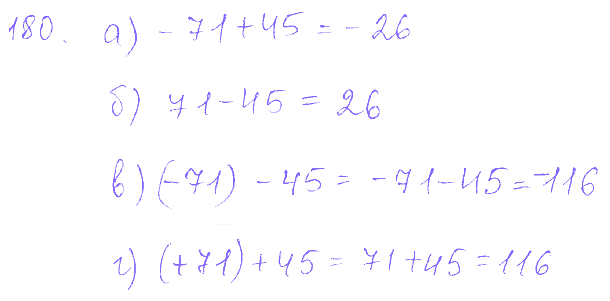 180. а) -71+45=-26
б) 71-45=26
в) (-71)-45=-71-45=-116
г) (+71)+45=71+45=116